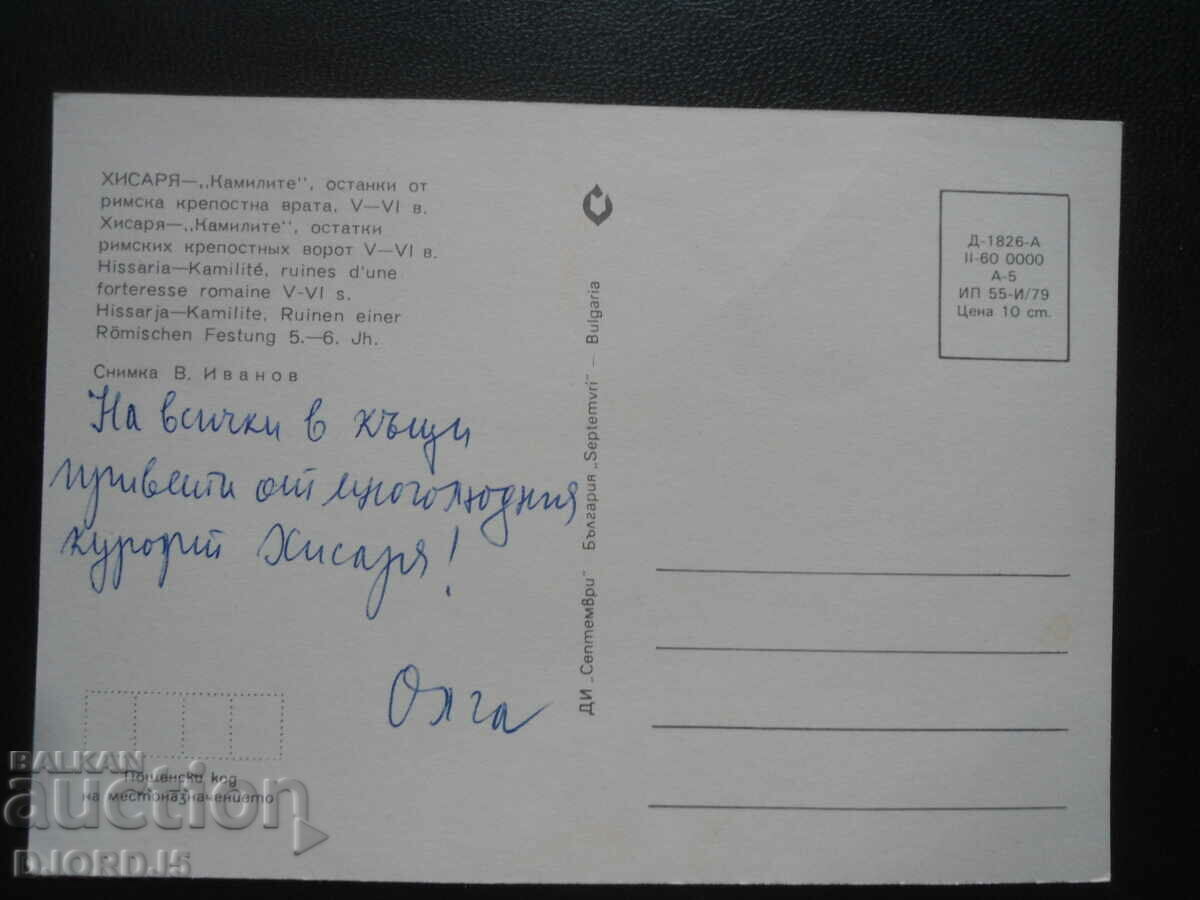 ХИСАРЯ—„Камилите", останки от
римска крепостна врата, V—VI в.
Хисаря—„Камилите", остатки
римских крепостных ворот V—VI в.
Hissaria—Kamilité, ruines d'une
forteresse romaine V-VI s.
Hissarja—Kamilite, Ruinen einer
Römischen Festung 5.—6. Jh.
Снимка В. Иванов
На всички в къщи
привети от многолюдния
курорт Хисаря!
Олга
Пощенски код
на местоназначението
ДИ „Септември" България „Septemvri" — Bulgaria
Д-1826-А
II-60 0000
А-5
ИП 55-И/79
Цена 10 ст.
BALKAN
auction
DJORDJ5